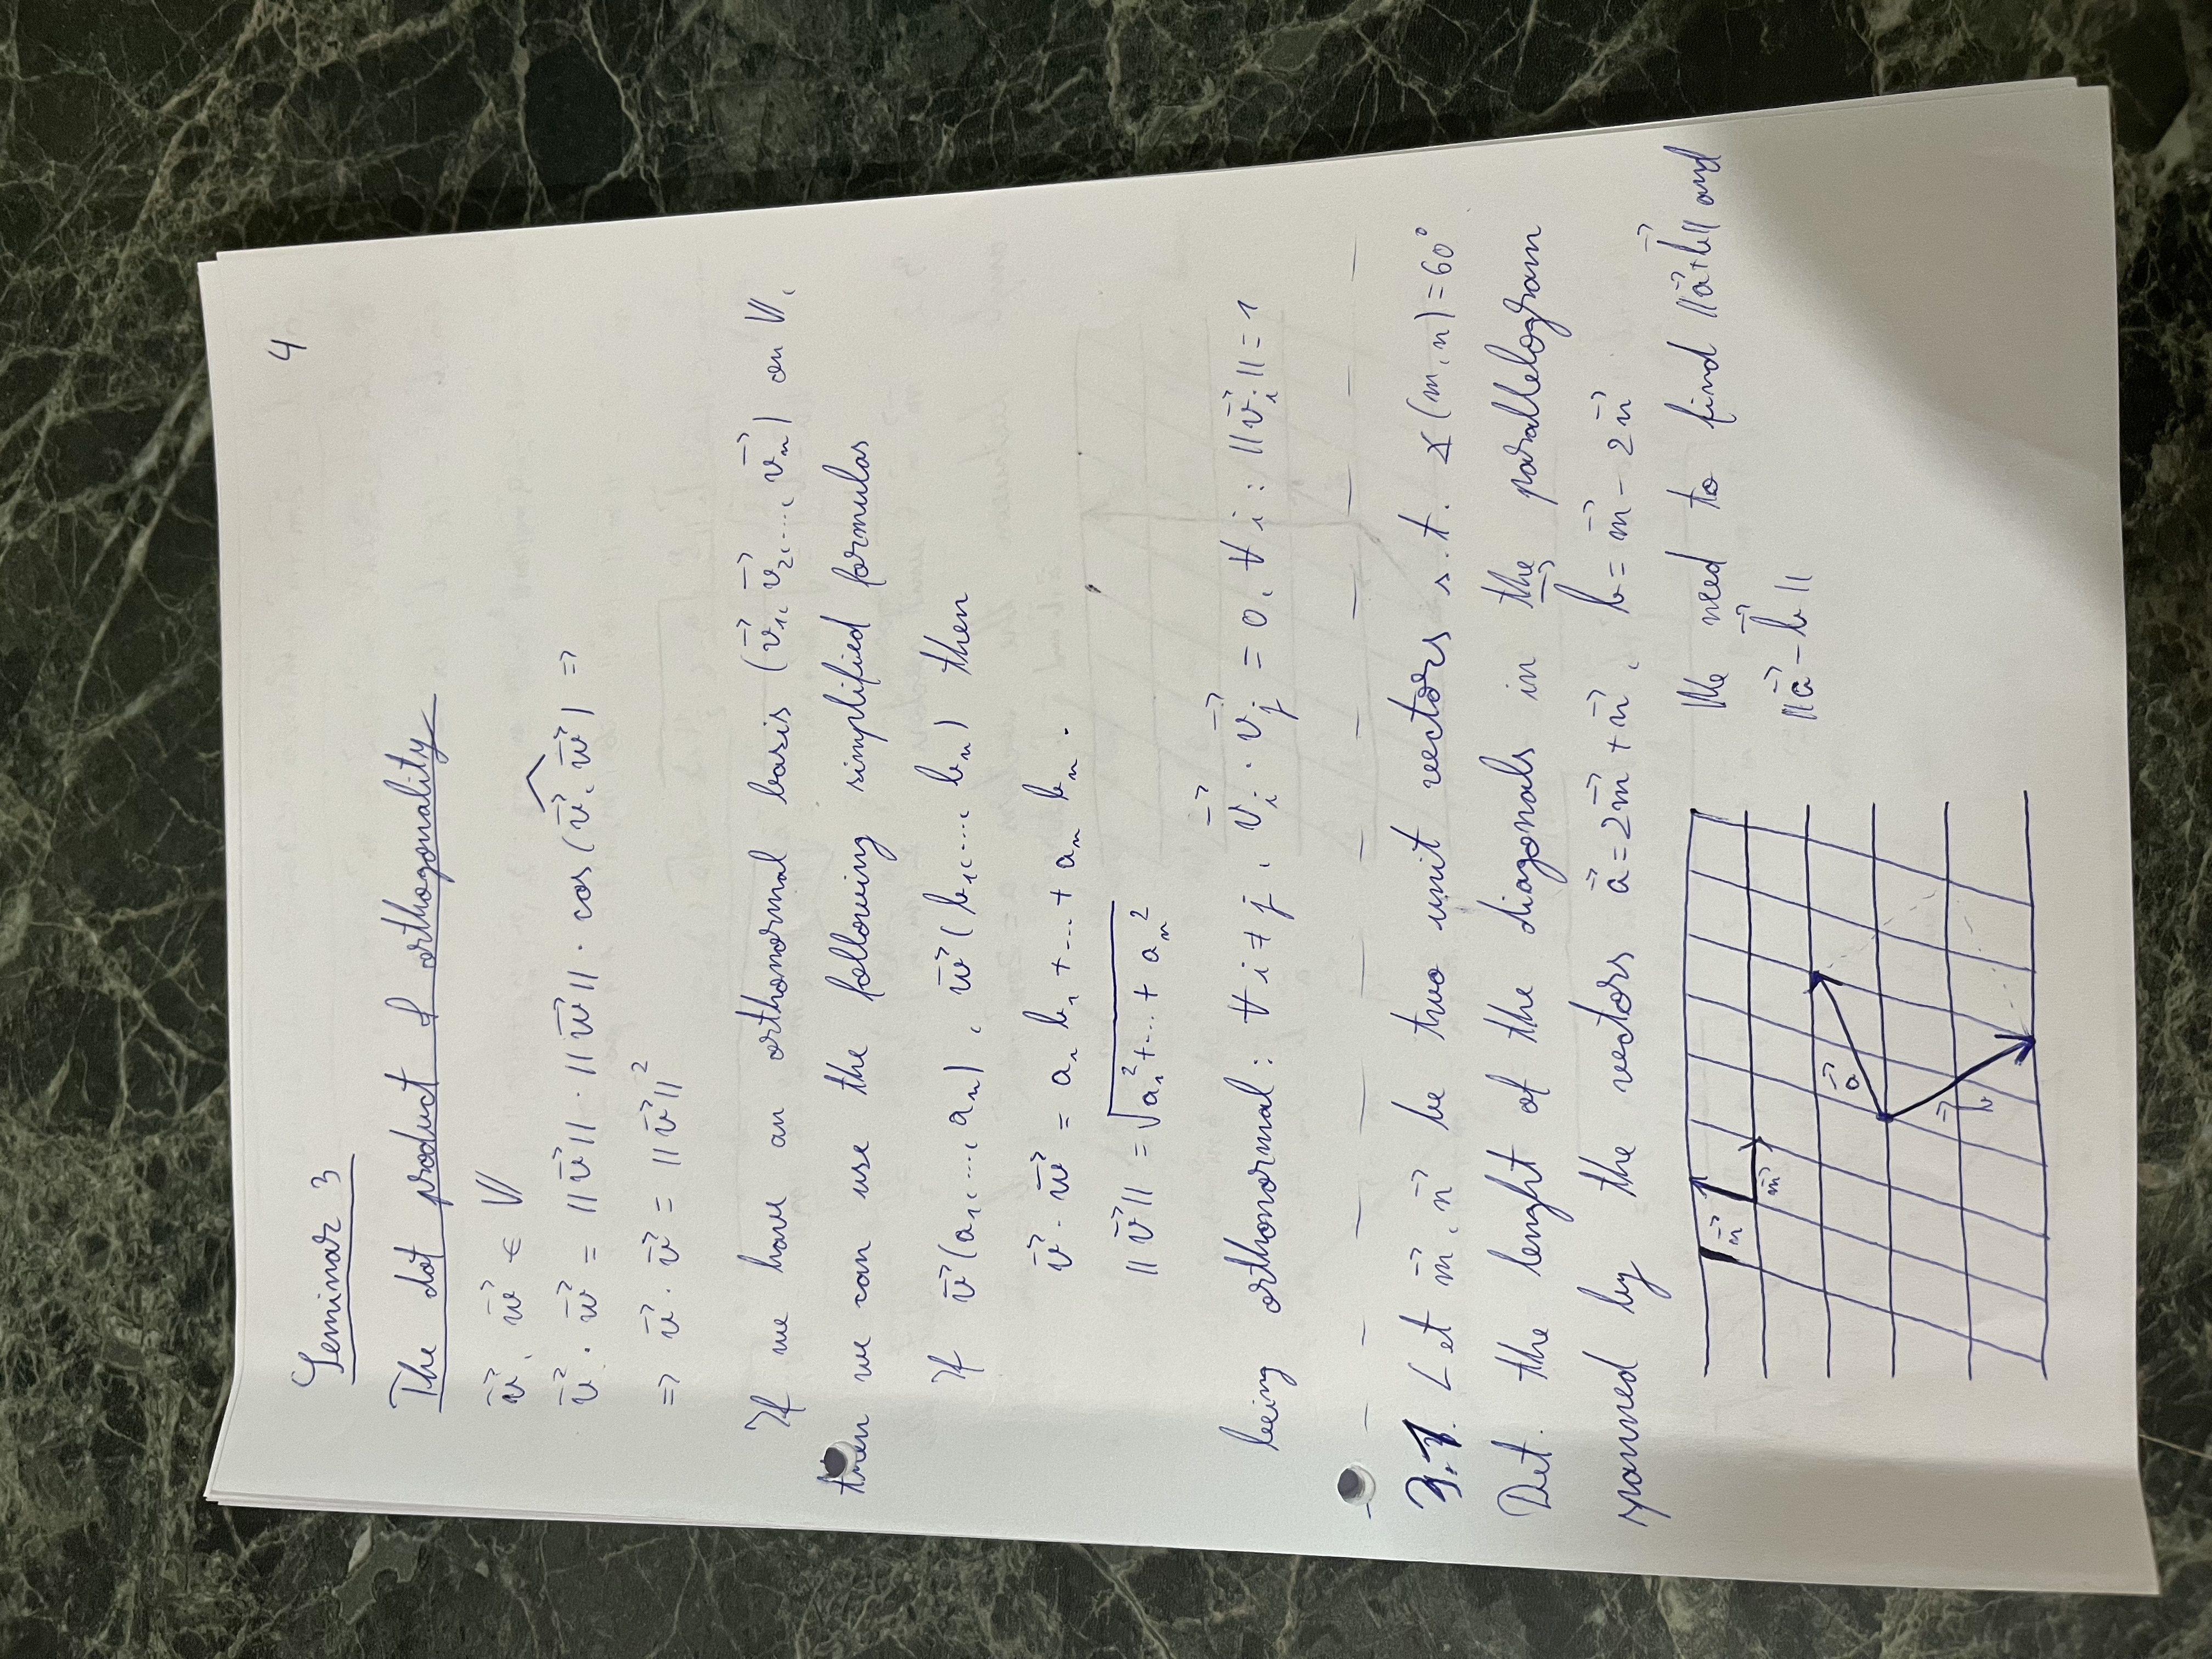 4
Seminar 3
The dot product & orthogonality
v⃗, w⃗ ∈ 𝕍
v⃗ · w⃗ = ||v⃗|| · ||w⃗|| · cos(v⃗, w⃗) =>
=> v⃗ · v⃗ = ||v⃗||²
If we have an orthonormal basis (v⃗₁, v⃗₂, ..., v⃗ₙ) on 𝕍,
then we can use the following simplified formulas
If v⃗(a₁, ..., aₙ), w⃗(b₁, ..., bₙ) then
v⃗ · w⃗ = a₁ b₁ + ... + aₙ bₙ.
||v⃗|| = √(a₁² + ... + aₙ²)
being orthonormal: ∀ i ≠ j, v⃗ᵢ · v⃗ⱼ = 0, ∀ i : ||v⃗ᵢ|| = 1
3.1. Let m⃗, n⃗ be two unit vectors s.t. ∡(m, n) = 60°
Det. the lenght of the diagonals in the parallelogram
spanned by the vectors a⃗ = 2m⃗ + n⃗, b⃗ = m⃗ - 2n⃗
We need to find ||a⃗+b⃗|| and
||a⃗ - b⃗||
n⃗
m⃗
a⃗
b⃗